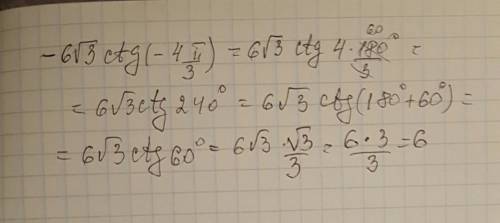 -6√3 ctg(-4π/3) = 6√3 ctg 4·180°/3 =
= 6√3 ctg 240° = 6√3 ctg(180°+60°) =
= 6√3 ctg 60° = 6√3 · √3/3 = 6·3/3 = 6